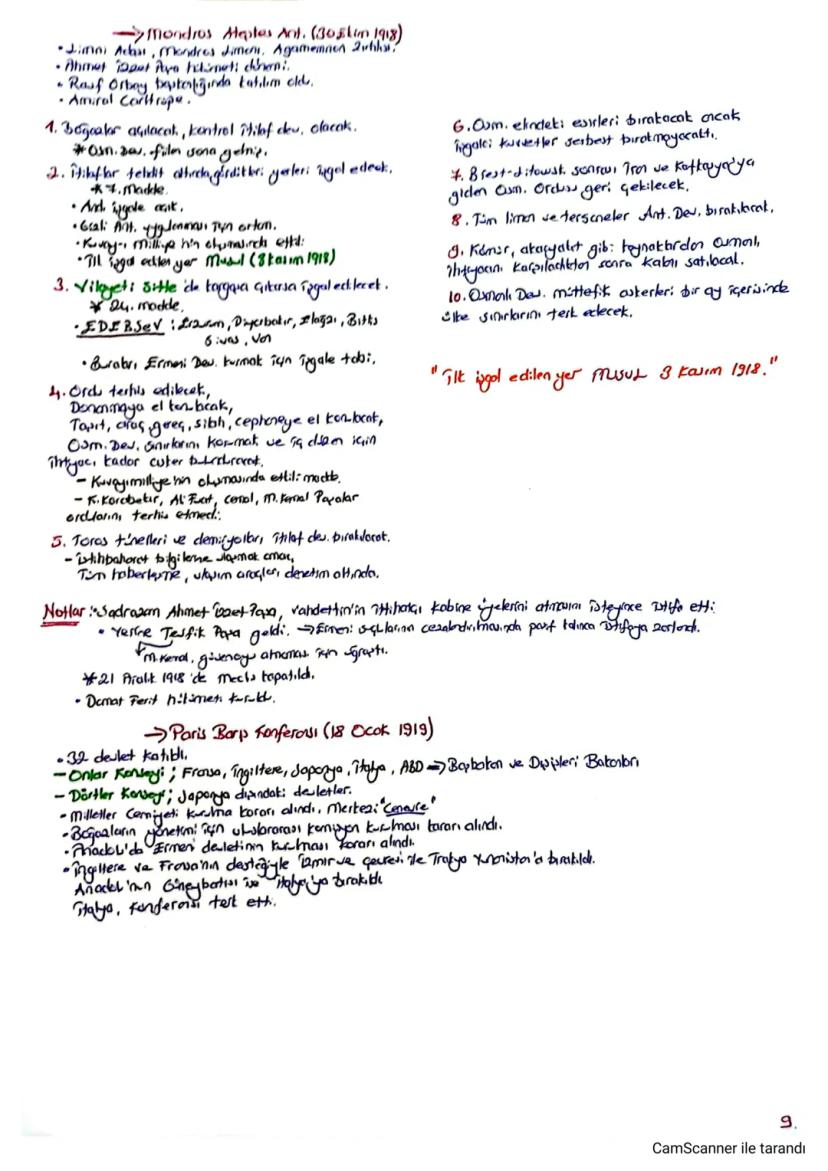 → Mondros Ateşkes Ant. (30 Ekim 1918)
• Limni Adası, Mondros Limanı, Agamemnon Zırhlısı.
• Ahmet İzzet Paşa hükümeti dönemi.
• Rauf Orbay başkanlığında katılım oldu.
• Amiral Calthrope.
1. Boğazlar açılacak, kontrol İtilaf dev. olacak.
* Osm. Dev. fiilen sona gelmiş.
2. İtilaflar tehdit altında gördükleri yerleri işgal edecek.
* 7. Madde
• And. işgale açık.
• Gizli Ant. uygulanması için ortam.
• Kuvay-ı Milliye'nin oluşmasında etkili
• İlk işgal edilen yer Musul (3 Kasım 1918)
3. Vilayeti Sitte'de kargaşa çıkarsa işgal edilecek.
* 24. madde
• EDEBSeV : Erzurum, Diyarbakır, Elazığ, Bitlis
Sivas, Van
• Burabrı Ermeni Dev. kurmak için işgale tabi.
4. Ordu terhis edilecek,
Donanmaya el konulacak,
Taşıt, araç gereç, silah, cephaneye el konulacak,
Osm. Dev. sınırlarını korumak ve iç düzen için
ihtiyacı kadar asker bulunduracak.
– Kuvayımilliye'nin oluşmasında etkili madde.
– K. Karabekir, Ali Fuat, Cemal, M. Kemal Paşalar
ordularını terhis etmedi.
5. Toros tünelleri ve demiryolları İtilaf dev. bırakılacak.
– istihbaharat bilgilerine ulaşmak amaç,
Tüm haberleşme, ulaşım araçları denetim altında.
6. Osm. elindeki esirleri bırakacak ancak
işgalci kuvvetler serbest bırakmayacaktı.
7. Brest-Litowsk sonrası İran ve Kafkasya'ya
giden Osm. Ordusu geri çekilecek.
8. Tüm liman ve tersaneler Ant. Dev. bırakılacak.
9. Kömür, akaryakıt gibi kaynaklardan Osmanlı
ihtiyacını karşıladıktan sonra kalanı satılacak.
10. Osmanlı Dev. müttefik askerleri bir ay içerisinde
ülke sınırlarını terk edecek.
"İlk işgal edilen yer MUSUL 3 Kasım 1918."
Notlar : • Sadrazam Ahmet İzzet Paşa, Vahdettin'in İttihatçı kabine üyelerini atmasını isteyince istifa etti.
• Yerine Tevfik Paşa geldi. → Ermeni suçlarının cezalandırılmasında pasif kalınca istifaya zorlandı.
M. Kemal, güvenoyu almaması için uğraştı.
* 21 Aralık 1918'de meclis kapatıldı.
• Damat Ferit hükümeti kuruldu.
→ Paris Barış Konferansı (18 Ocak 1919)
• 32 devlet katıldı.
– Onlar Konseyi ; Fransa, İngiltere, Japonya, İtalya, ABD → Başbakan ve Dışişleri Bakanları
– Dörtler Konseyi ; Japonya dışındaki devletler.
• Milletler Cemiyeti kurulma kararı alındı. Merkezi "Cenevre"
• Boğazların yönetimi için uluslararası komisyon kurulması kararı alındı.
• Anadolu'da Ermeni devletinin kurulması kararı alındı.
• İngiltere ve Fransa'nın desteğiyle İzmir ve çevresi ile Trakya Yunanistan'a bırakıldı.
Anadolu'nun Güneybatısı ise İtalya'ya bırakıldı
İtalya, konferansı terk etti.
9.
CamScanner ile tarandı